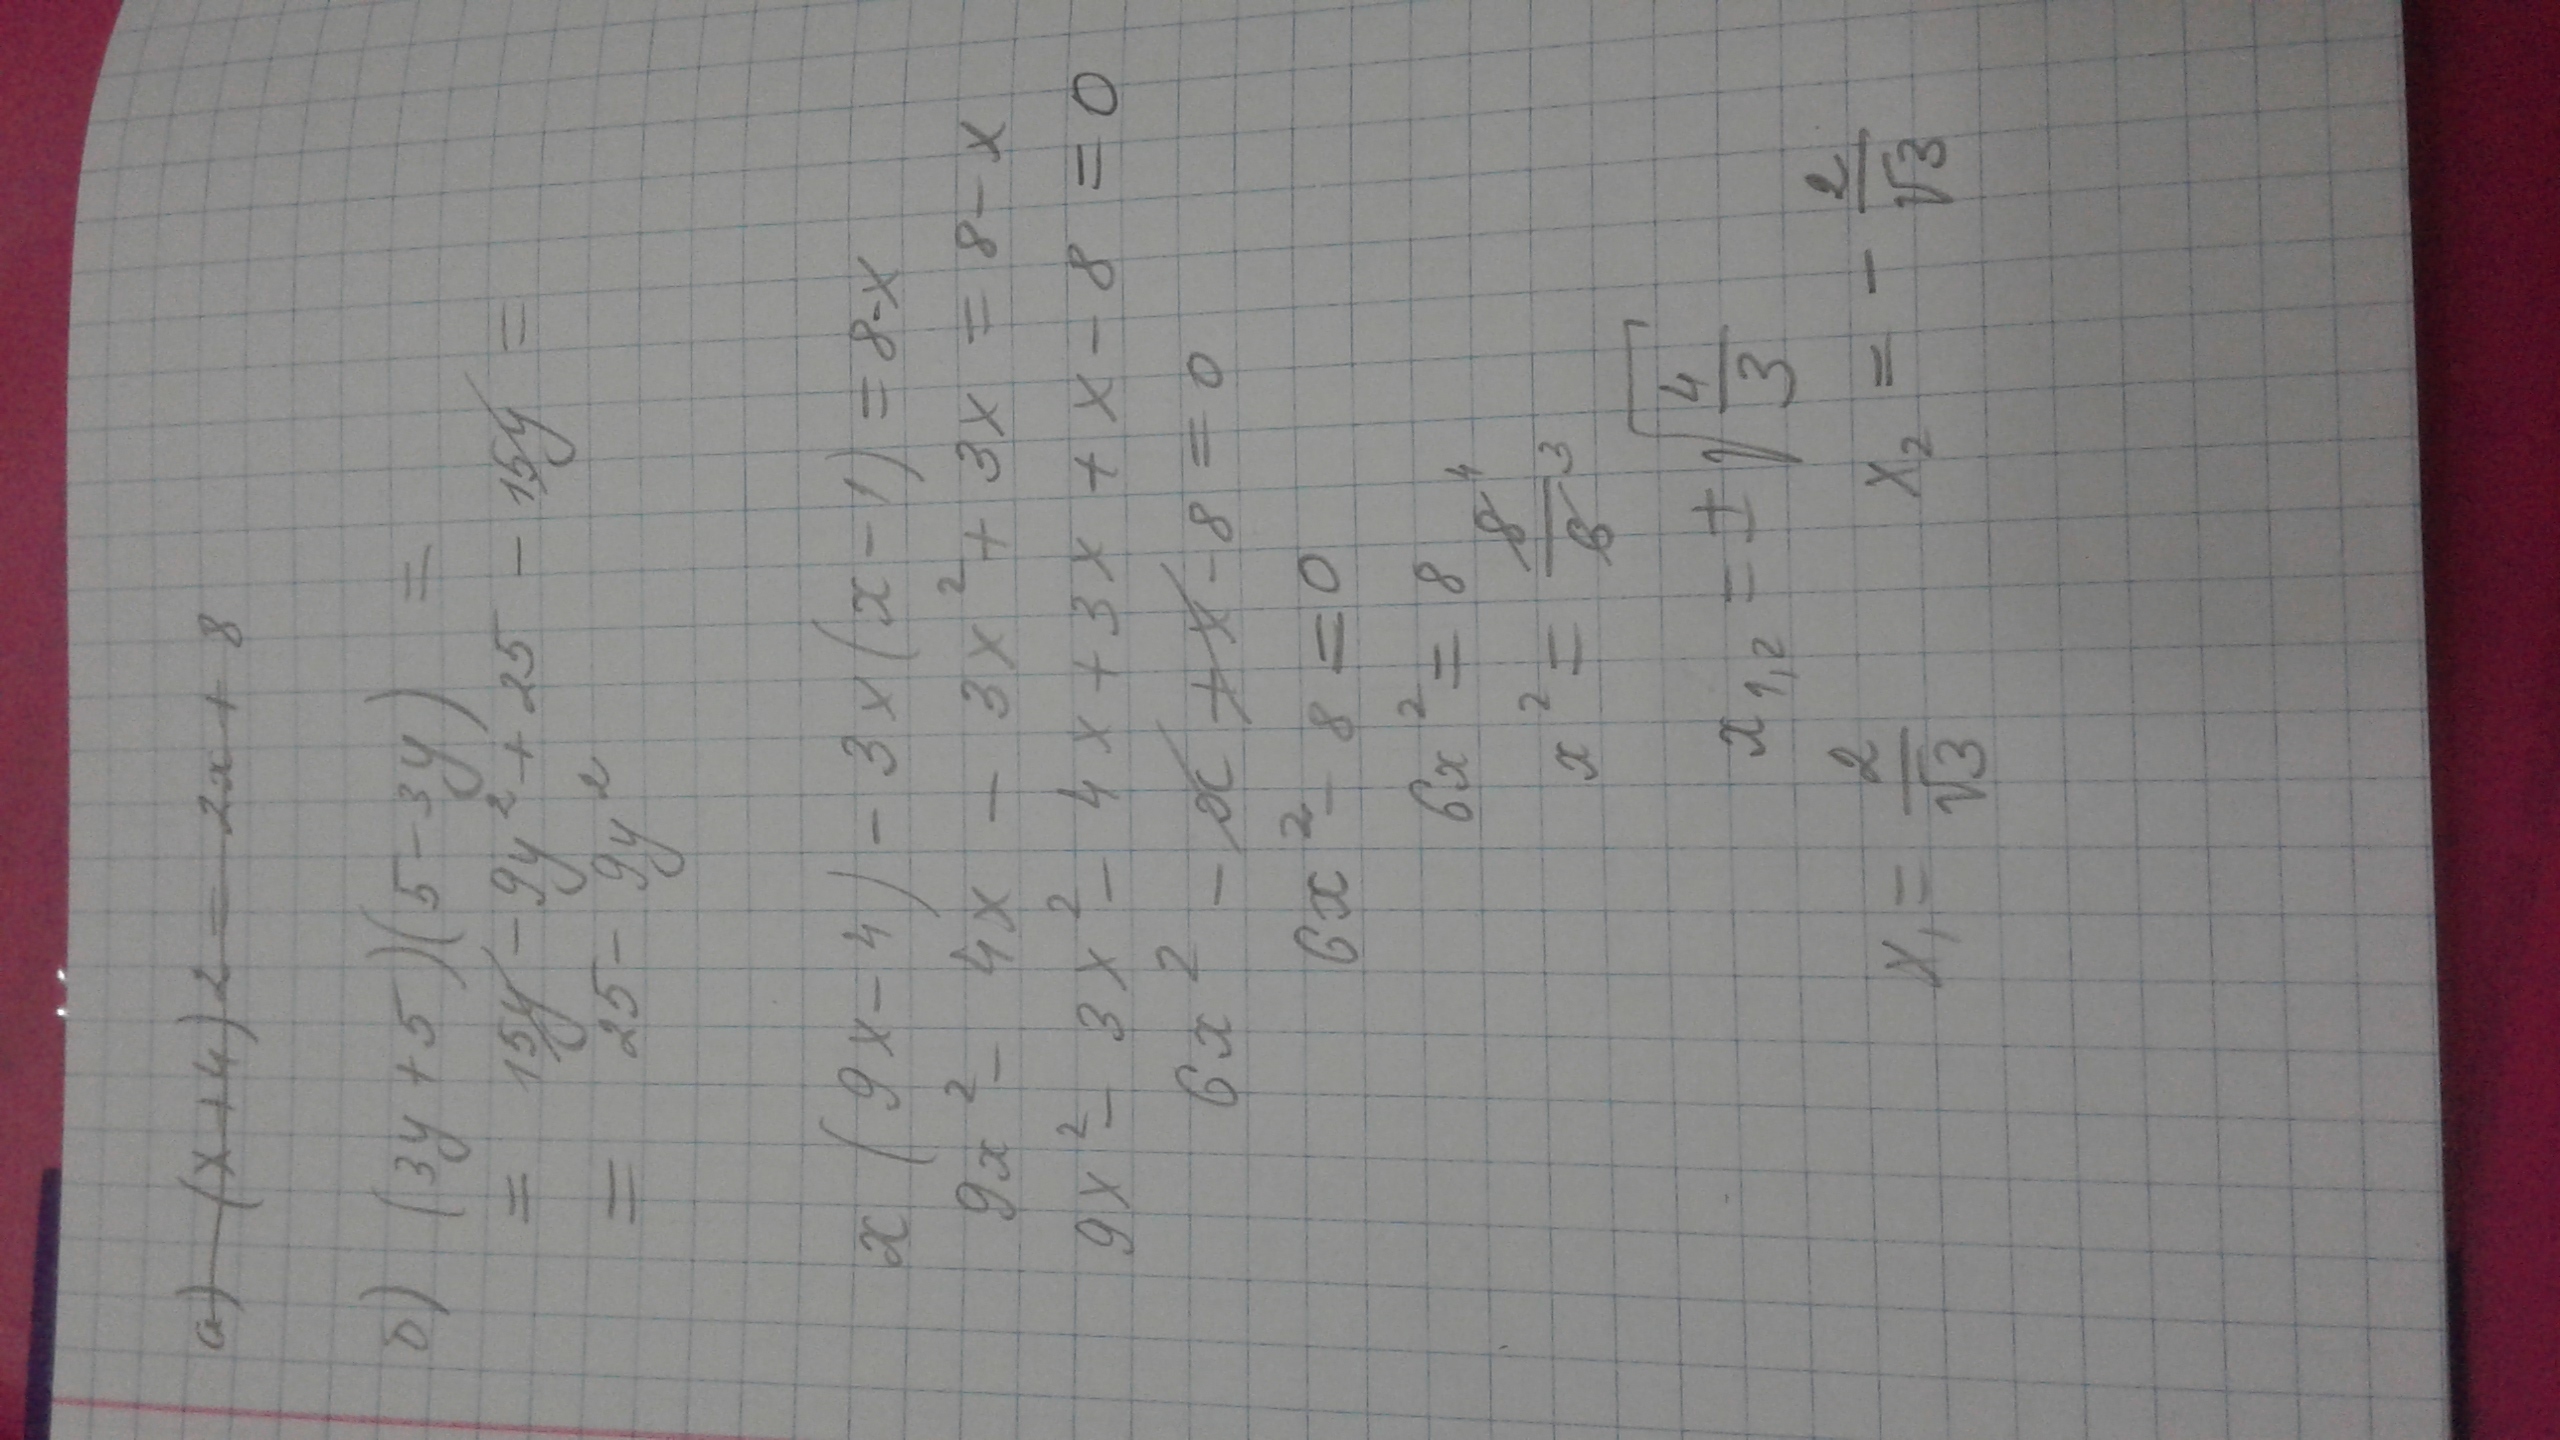 а) (x+4)2 = 2x + 8
б) (3y + 5)(5 - 3y) =
= 15y - 9y² + 25 - 15y =
= 25 - 9y²
x (9x - 4) - 3x (x - 1) = 8 - x
9x² - 4x - 3x² + 3x = 8 - x
9x² - 3x² - 4x + 3x + x - 8 = 0
6x² - x + x - 8 = 0
6x² - 8 = 0
6x² = 8
x² = 8/6 4/3
x1,2 = ± √4/3
x1 = 2/√3 x2 = - 2/√3